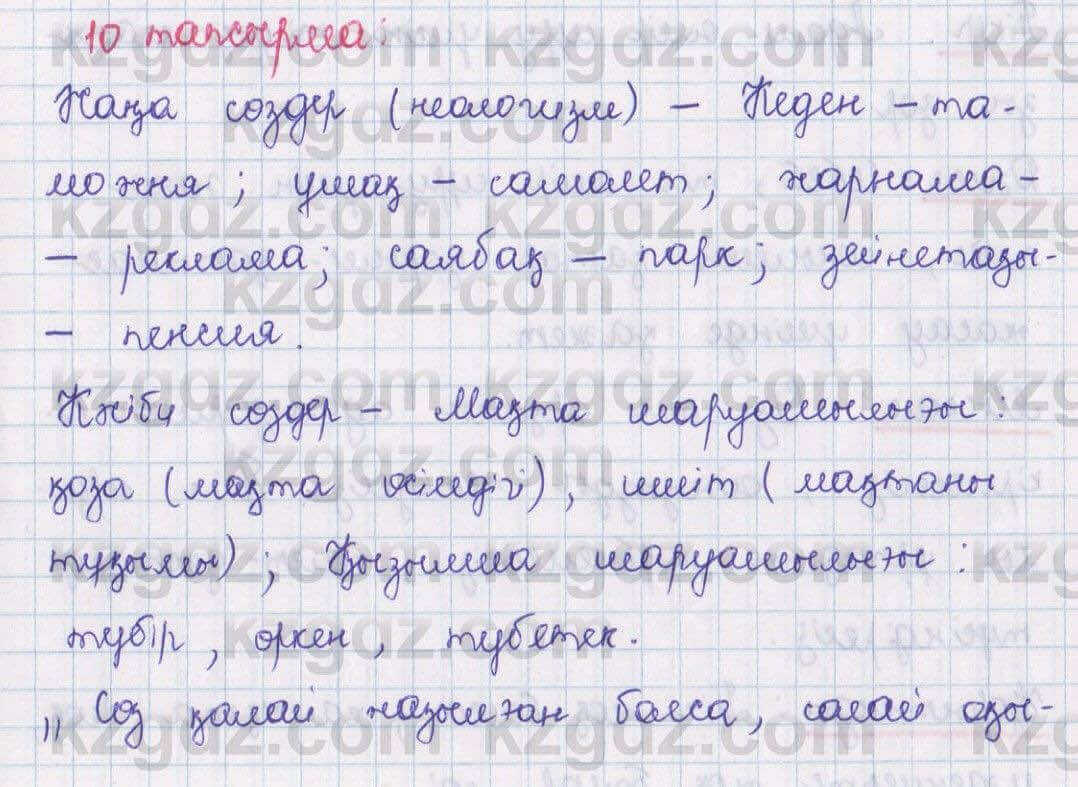 10 тапсырма:
Жаңа сөздер (неологизм) – Кеден – та-
можня; ұшақ – самолет; жарнама –
– реклама; саябақ – парк; зейнетақы –
– пенсия.
Кәсіби сөздер – Мақта шаруашылығы:
қоза (мақта өсімдігі), шиіт (мақтаны
тұқымы); Қызылша шаруашылығы:
түбір, өркен, түбетек.
,, Сөз қалай жазылған болса, солай оқы-
kzgdz.com